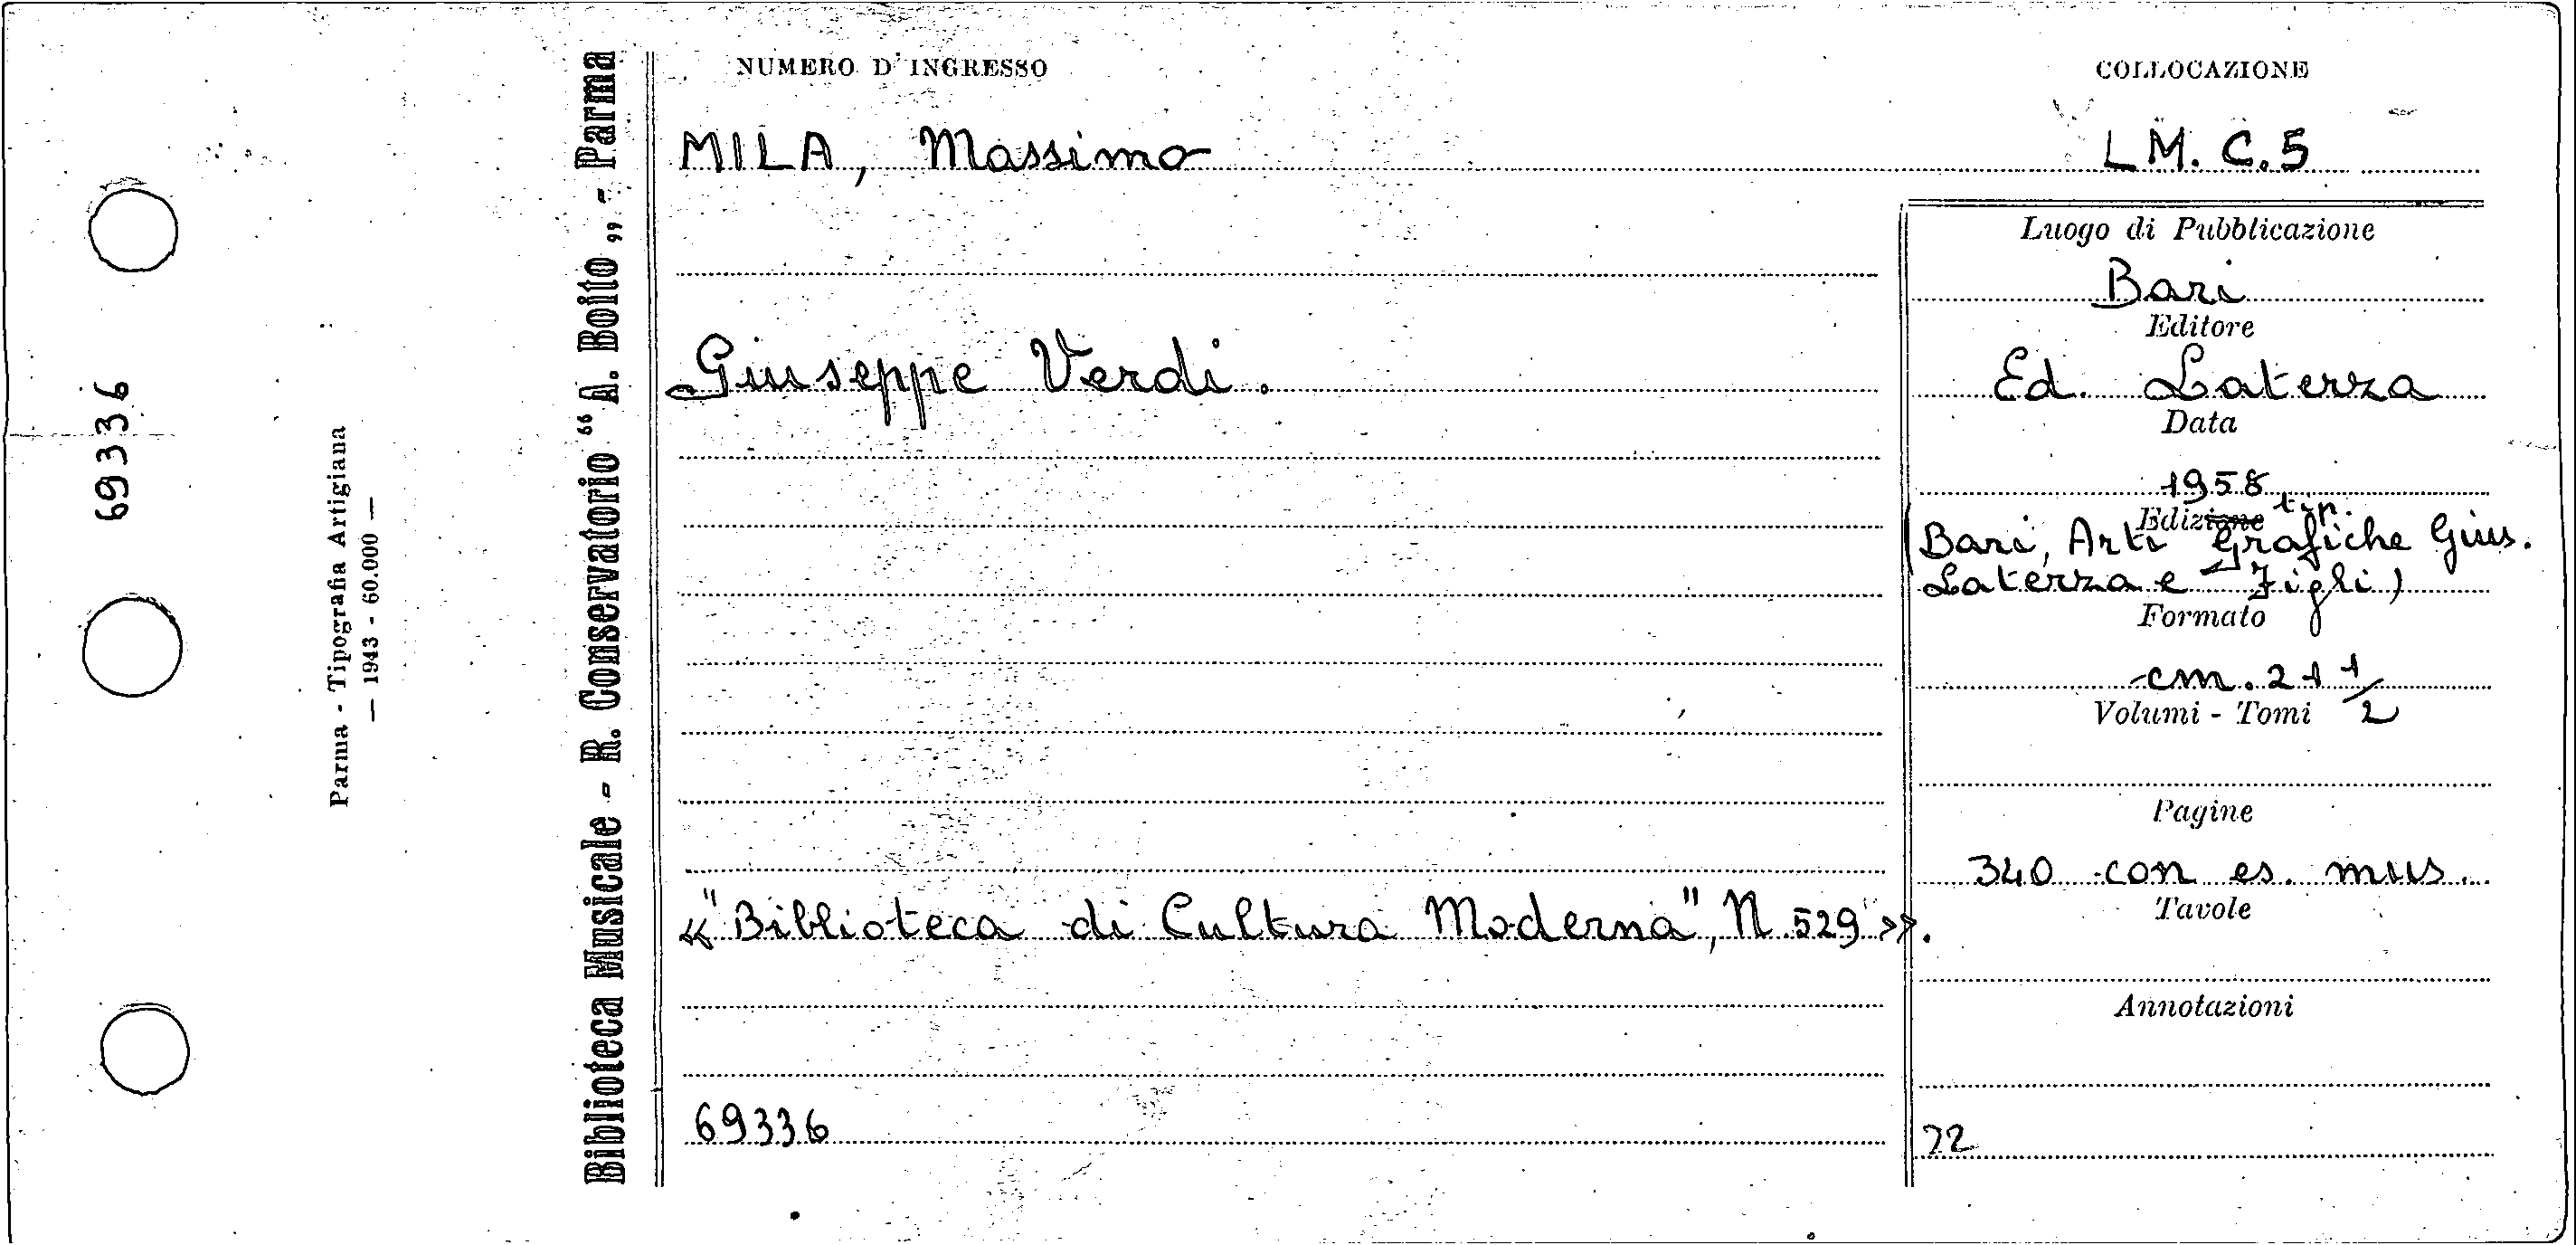 69336
Parma - Tipografia Artigiana
— 1943 - 60.000 —
Biblioteca Musicale - R. Conservatorio “ A. Boito „ - Parma
NUMERO D'INGRESSO
COLLOCAZIONE
MILA, Massimo
LM. C.5
Luogo di Pubblicazione
Bari
Editore
Giuseppe Verdi.
Ed. Laterza
Data
1958
Edizione tip.
(Bari, Arti Grafiche Gius.
Laterza e Figli)
Formato
cm. 21 1/2
Volumi - Tomi
Pagine
340 con es. mus.
Tavole
«"Biblioteca di Cultura Moderna", N. 529».
Annotazioni
69336
22